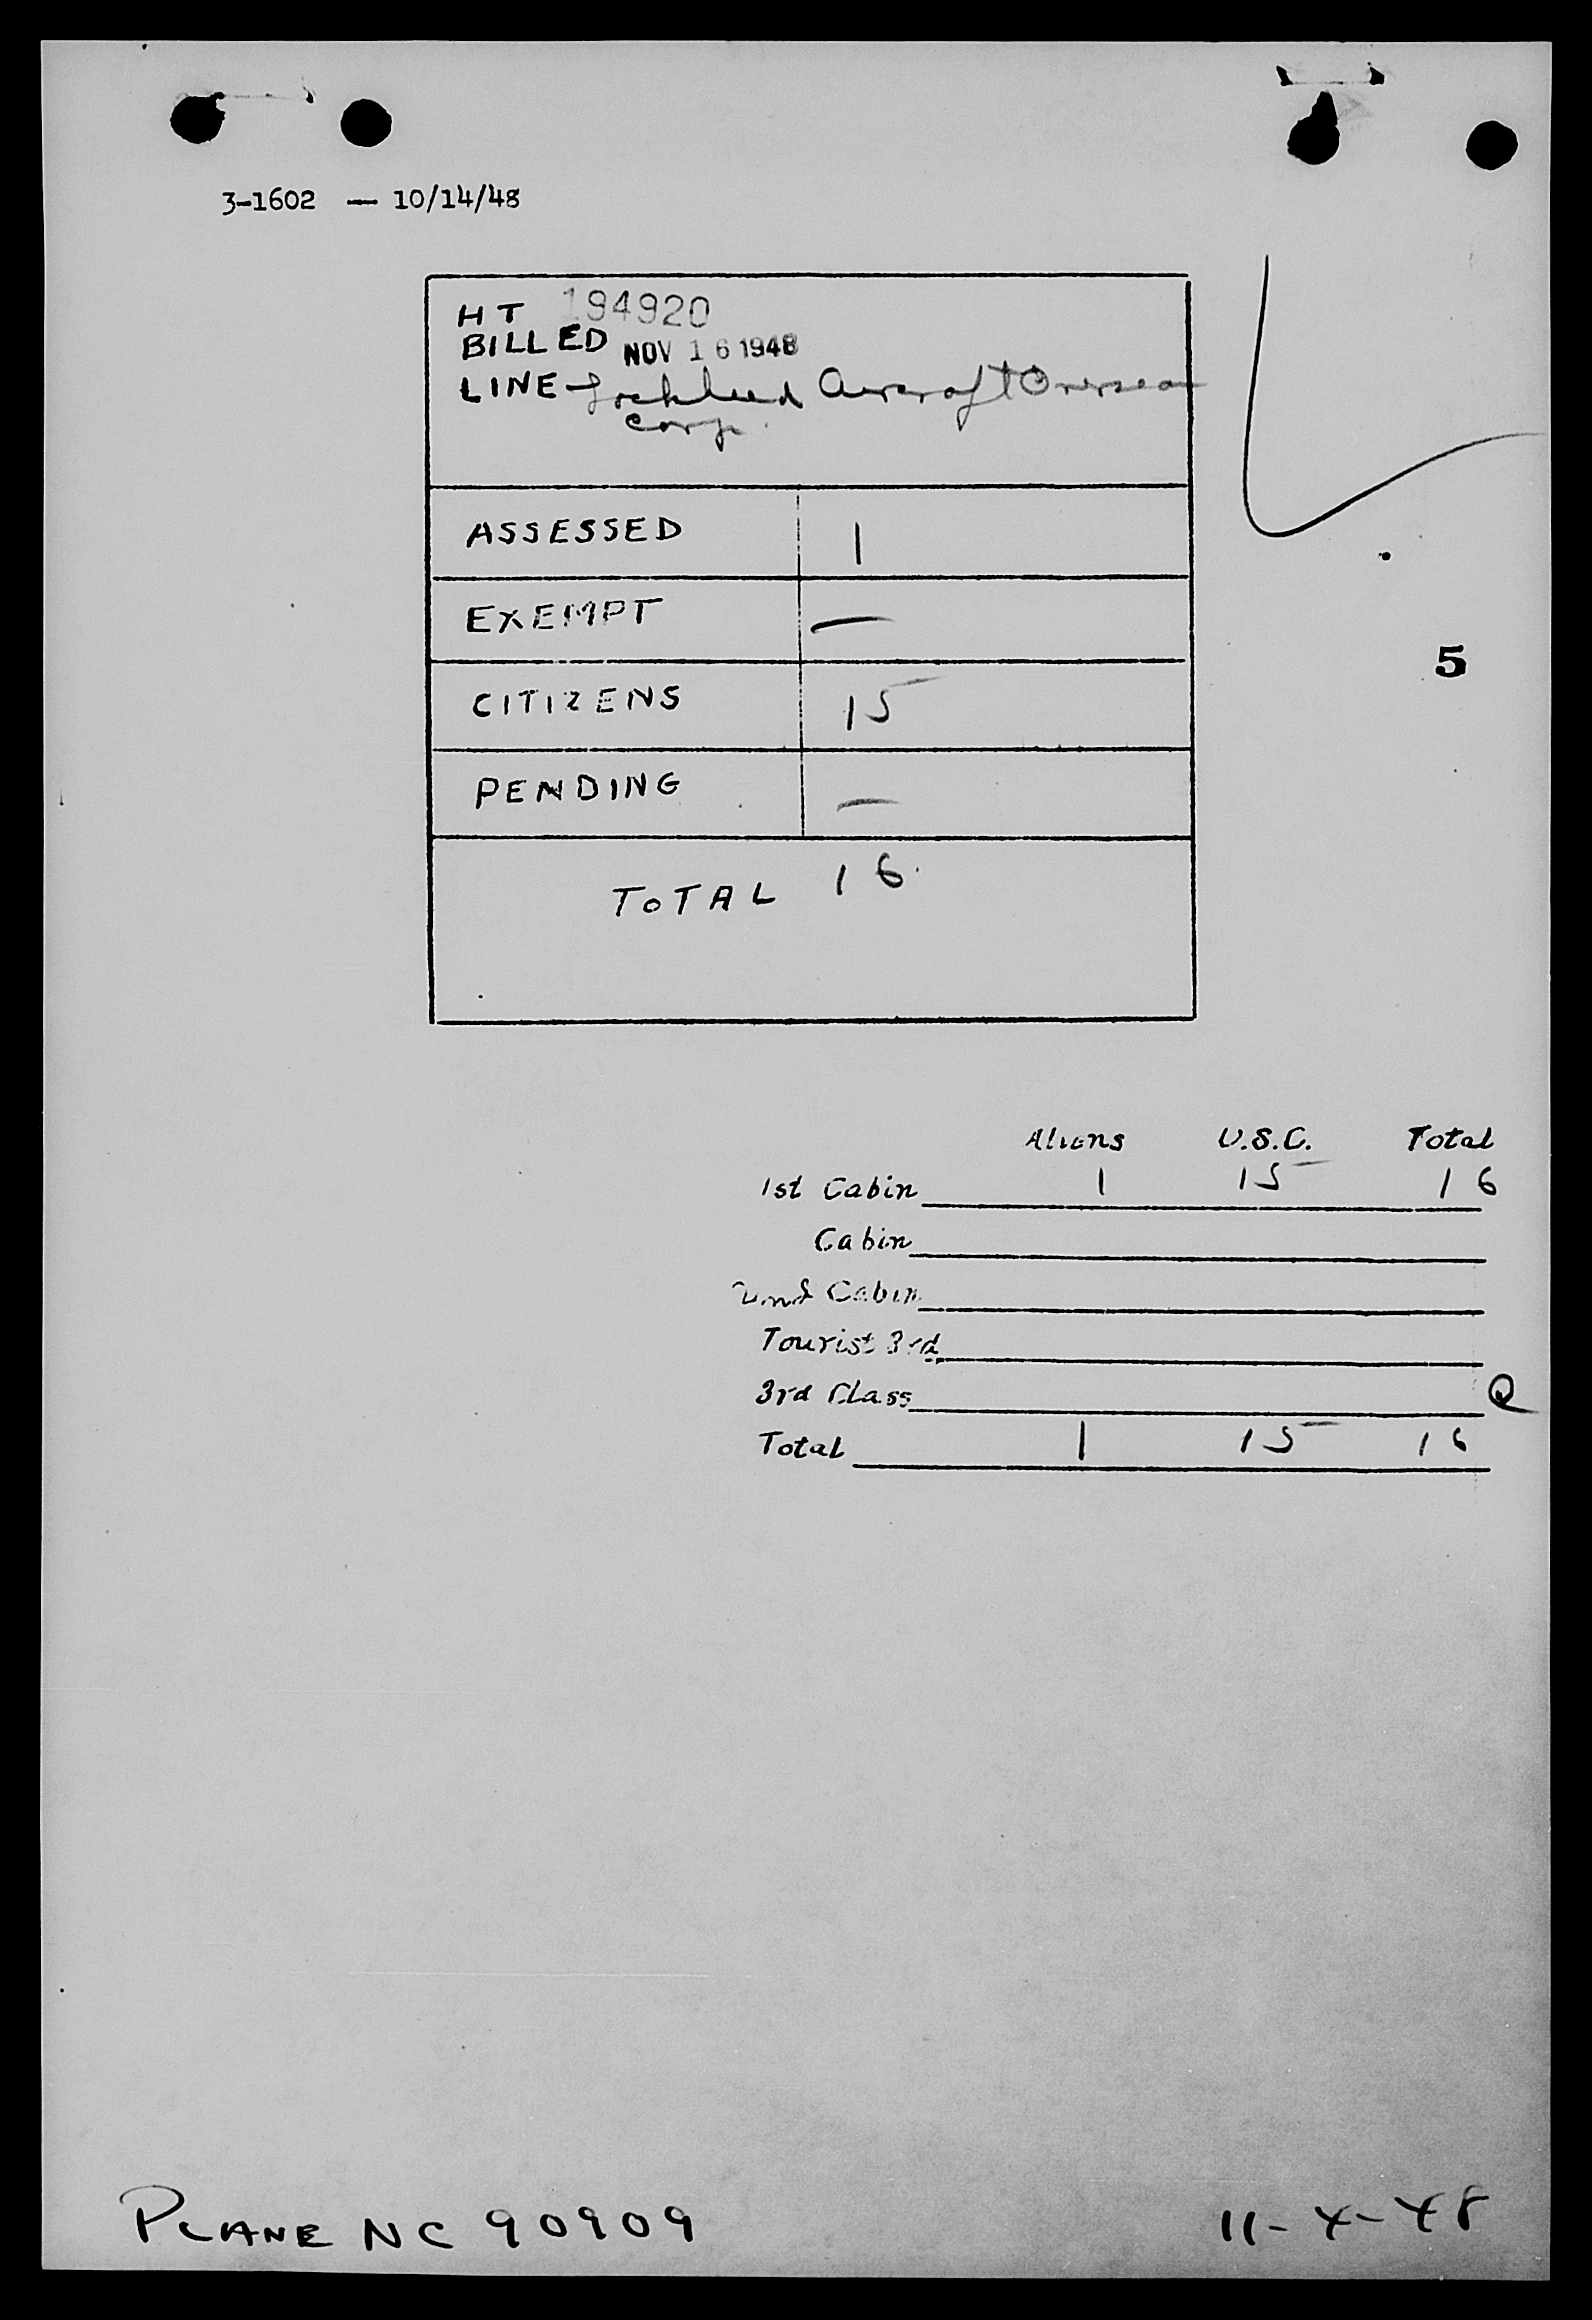 3-1602 — 10/14/48
HT 194920
BILLED NOV 16 1948
LINE - Lockheed Aircraft Overseas
Corp.
ASSESSED 1
EXEMPT —
5
CITIZENS 15
PENDING —
TOTAL 16
Aliens U.S.C. Total
1st Cabin 1 15 16
Cabin
2nd Cabin
Tourist 3rd
3rd Class
Total 1 15 16
PLANE NC 90909 11-4-48